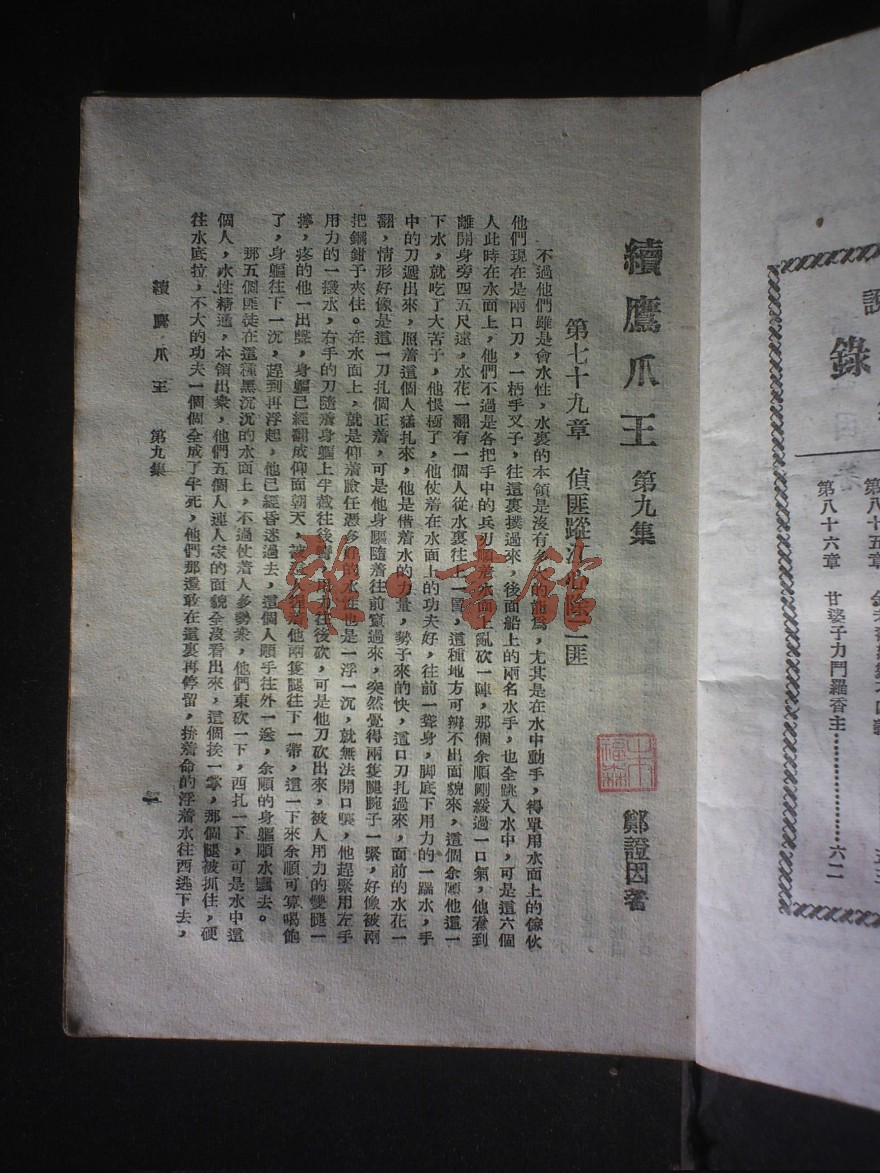 錄
第八十五章
第八十六章　甘婆子力鬥羅香主………………六一
續鷹爪王　第九集
鄭證因著
第七十九章　偵匪蹤江心除二匪
不過他們雖是會水性，水裏的本領是沒有多大的能爲，尤其是在水中動手，得單用水面上的傢伙
他們現在是兩口刀，一柄手叉子，往這裏撲過來，後面船上的兩名水手，也全跳入水中，可是這六個
人此時在水面上，他們不過是各把手中的兵刃順着水面上亂砍一陣，那個余順剛緩過一口氣，他看到
離開身旁四五尺遠，水花一翻有一個人從水裏往上一冒，這種地方可辨不出面貌來，這個余順他這一
下水，就吃了大苦子，他恨極了，他仗着在水面上的功夫好，往前一聳身，脚底下用力的一踹水，手
中的刀遞出來，照着這個人猛扎來，他是借着水的力量，勢子來的快，這口刀扎過來，面前的水花一
翻，情形好像是這一刀扎個正着，可是他身軀隨着往前竄過來，突然覺得兩隻腿腕子一緊，好像被兩
把鋼鉗子夾住。在水面上，就是仰着臉任憑多好的水性也是一浮一沉，就無法開口嚷，他趕緊用左手
用力的一撥水，右手的刀隨着身軀上半截往後臂，用力往後砍，可是他刀砍出來，被人用力的雙腿一
擰，疼的他一出聲，身軀已經翻成仰面朝天，被人捋着他兩隻腿往下一帶，這一下來余順可算喝飽
了，身軀往下一沉，趕到再浮起，他已經昏迷過去，這個人順手往外一送，余順的身軀順水飄去。
那五個匪徒在這種黑沉沉的水面上，不過仗着人多勢衆，他們東砍一下，西扎一下，可是水中這
個人，水性精通，本領出衆，他們五個人連人家的面貌全沒看出來，這個挨一掌，那個腿被抓住，硬
往水底拉，不大的功夫一個個全成了半死，他們那還敢在這裏再停留，拚着命的浮着水往西逃下去，
續鷹爪王　第九集
一
雜·書館